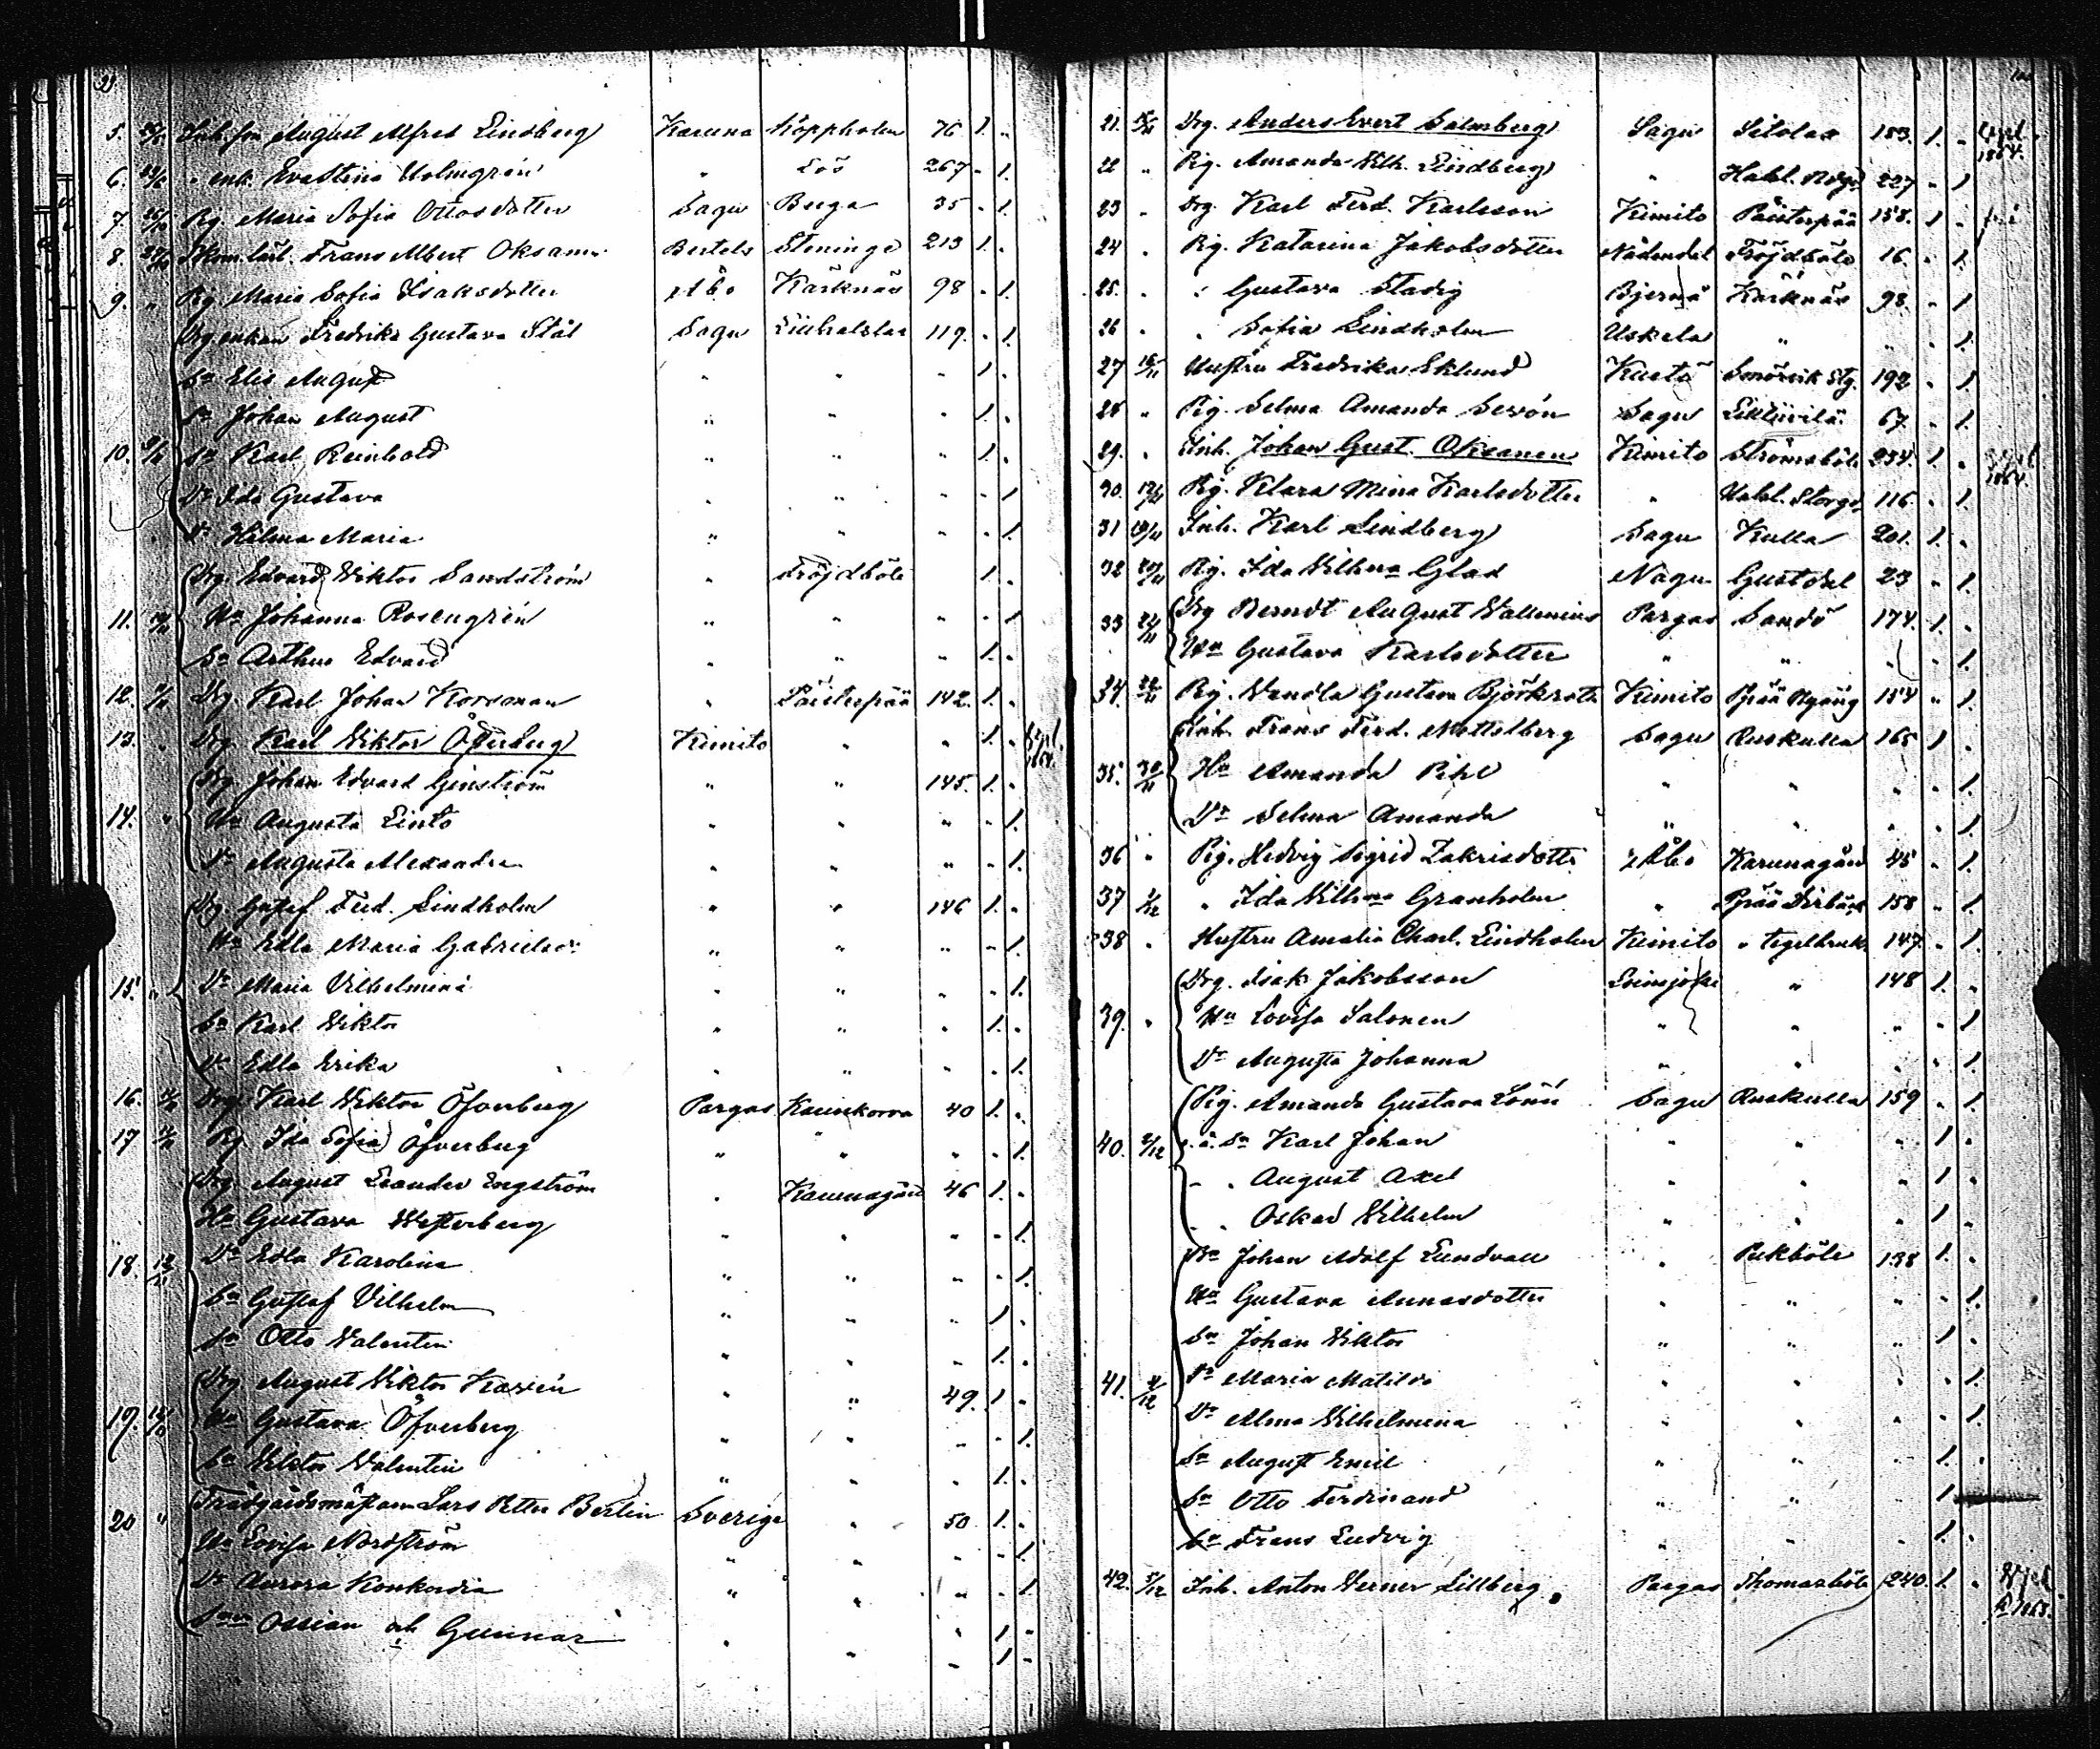 5. Inh. son August Alfred Lindberg Karuna Koppholm 76 1. "
6. " enk. Eva Stina Holmgrén " Lös 267 " 1.
7 Pig. Maria Sofia Ottosdotter Sagu Berga 35 " 1.
8. Frans Albert Oksanen Bertels Steninge 213 1. "
9. " Pig. Maria Sofia Isaksdotter Åbo Karknäs 98 " 1.
Drg enkan Fredrika Gustava Stål Sagu 119. " 1.
Sn Elis August " " " 1. "
Sn Johan August " " " 1. "
10. Sn Karl Reinhold " " " 1. "
Dr Ida Gustava " " " " 1
Dr Hilma Maria " " " " 1.
Drg. Edvard Viktor Sandström " Fröjdböle 1. "
11. Hu Johanna Rosengrén " " " " 1
Sn Arthur Edvard " " " 1. "
12. Drg. Karl Johan Korsman " Päisterpää 142. 1. "
13. " Drg. Karl Viktor Öfverberg Kimito " " 1. "
Drg. Johan Edvard Genström " " 145. 1. "
14. " Hu Augusta LintO " " " " 1.
Dr Augusta Alexandra " " " " 1.
Drg. Gustaf Ferd. Lindholm " " 146 1. "
Hu Edla Maria Gabrielsdr " " " " 1.
15. " Dr Maria Vilhelmina " " " " 1.
Sn Karl Viktor " " " 1. "
Dr Edla Erika " " " " 1.
16. Drg. Karl Viktor Öfverberg Pargas Kaunkorva 40 1. "
17 Pig. Ida Sofia Öfverberg " " " " 1.
Drg. August Leander Engström " Karunagård 46 1. "
Hu Gustava Westerberg " " " " 1.
18. Dr Edla Karolina " " " " 1.
Sn Gustaf Vilhelm " " " 1 "
Sn Otto Valentin " " " 1. "
Drg. August Viktor Kavén " " 49. 1 "
19. Hu Gustava Öfverberg " " " " 1.
Sn Viktor Valentin " " " 1. "
Trädgårdsmästaren Lars Petter Berlin Sverige " 50 1. "
20 " Hu Lovisa Nordström " " " " 1.
Dr Aurora Konkordia " " " " 1.
Ossian och Gunnar " " " 1 "
" " 1 "
21. Drg. Anders Evert Salmberg Sagu Sitolax 183. 1. " 1864.
22 " Pig. Amanda Vilh. Lindberg " 227 " 1
23 " Drg. Karl Ferd. Karlsson Kimito Päisterpää 158. 1. "
24 " Pig. Katarina Jakobsdotter Nådendal Fröjdböle 16. " 1.
25. " " Gustava Stadig Bjernå Karknäs 98. " 1
26 " " Sofia Lindholm Uskela " " " 1.
27 Hustru Fredrika Eklund Kustö Smörvik Stg. 192 " 1.
28 " Pig. Selma Amanda Sevón Sagu 67 " 1.
29. " Inh. Johan Gust. Oksanen Kimito Strömsböle 234. 1. " 1864.
30. Pig. Klara Mina Karlsdotter " Storgd. 116 " 1.
31 Inh. Karl Lindberg Sagu Kulla 201. 1. "
32 Pig. Ida Vilhma Glad Nagu Gustdal 23 " 1.
33 Drg Berndt August Wallenius Pargas Sandö 174. 1. "
Hu Gustava Karlsdotter " " " " 1
34 Pig. Vendla Gustava Björkroth Kimito 154 " 1
Inh. Frans Ferd. Mettelberg Sagu Ruskulla 165 1 "
35. 30/11 Hu Amanda Pihl " " " " 1.
Dr Selma Amanda " " " " 1.
36 " Pig. Hedvig Sigrid Zakrisdotter Åbo Karunagård 45 " 1.
37 1/12 " Ida Vilhma Granholm " 158 " 1.
38 " Hustru Amalia Charl. Lindholm Kimito " Tegelbruk 147. " 1.
Drg. Isak Jakobsson Loimijoki " 148 1. "
39. " Hu Lovisa Salonen " " " " 1
Dr Augusta Johanna " " " " 1.
Pig. Amanda Gustava Sagu Ruskulla 159 " 1.
40. 2/12 o. ä. Sn Karl Johan " " " 1 "
" " August Axel " " " 1 "
" " Oskar Vilhelm " " " 1 "
Johan Adolf Lundvall " Pukböle 138 1. "
Hu Gustava Annasdotter " " " " 1.
Sn Johan Viktor " " " 1 "
41. 4/12 Dr Maria Matilda " " " " 1.
Dr Alma Vilhelmina " " " " 1.
Sn August Emil " " " 1. "
Sn Otto Ferdinand " " " 1
Sn Frans Ludvig " " " 1. "
42. 5/12 Inh. Anton Verner Lillberg. Pargas Thomasböle 240. 1. "